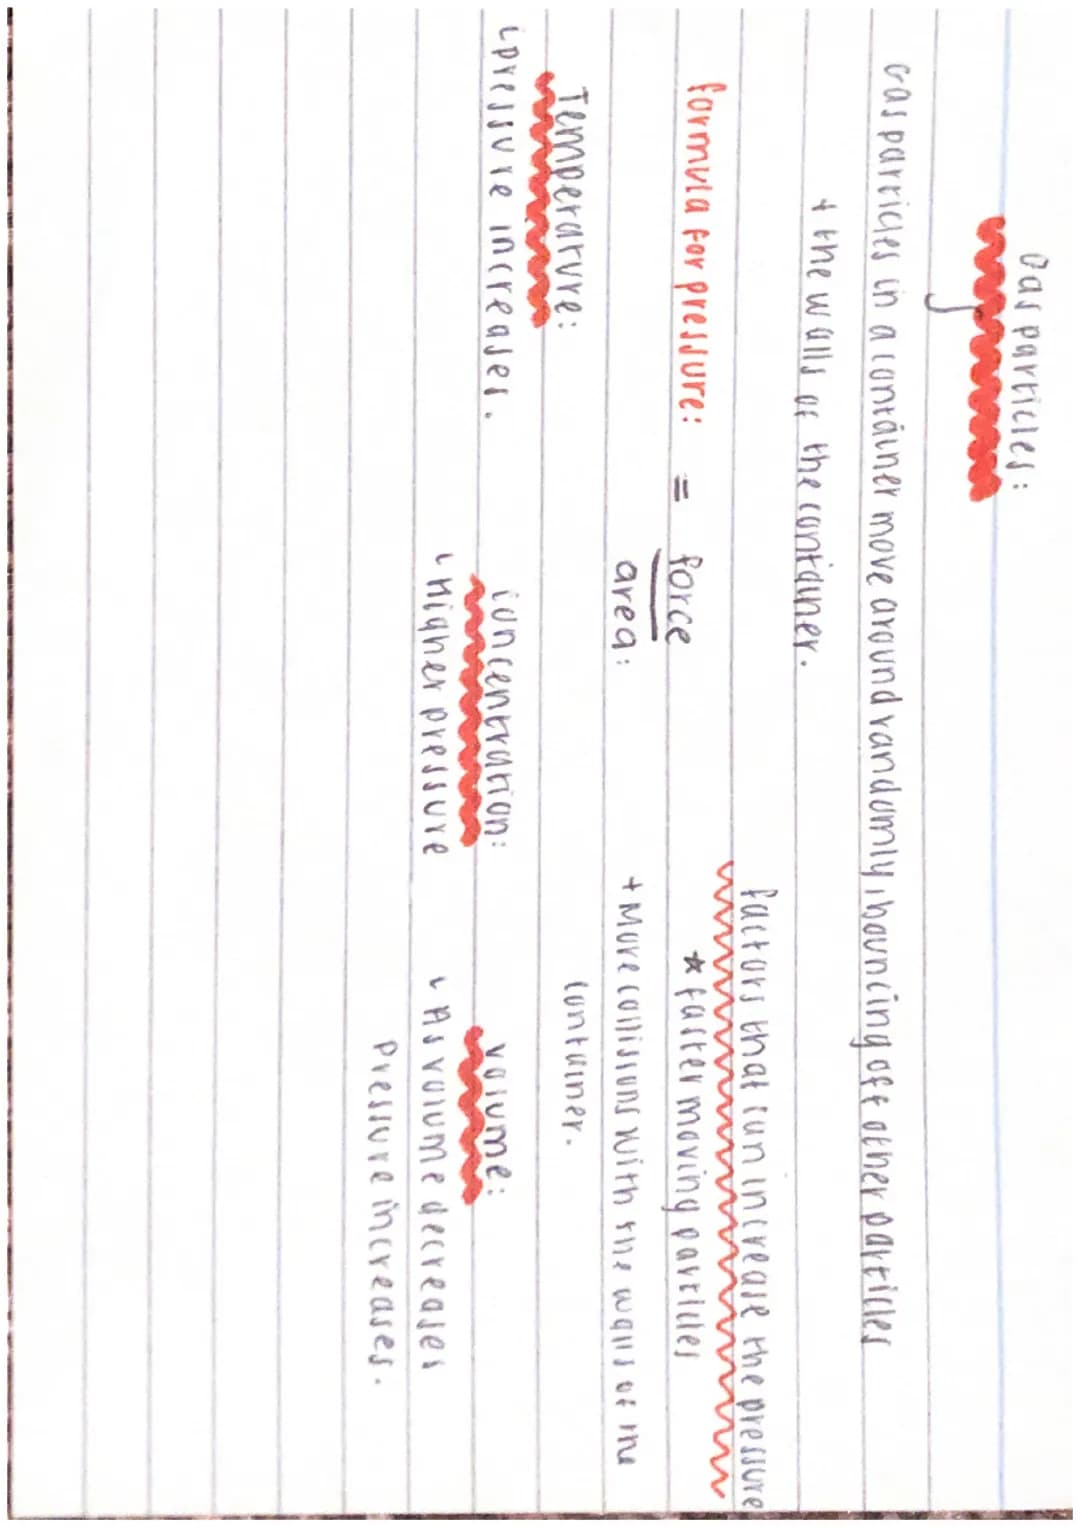 Gas particles:
Gas particles in a container move around randomly, bouncing off other particles
+ the walls of the container.
factors that can increase the pressure
formula for pressure: = force
area:
* faster moving particles
+ More collisions with the walls of the
container.
Temperature:
↳ pressure increases.
concentration:
↳ Higher pressure
volume:
↳ As volume decreases
pressure increases.